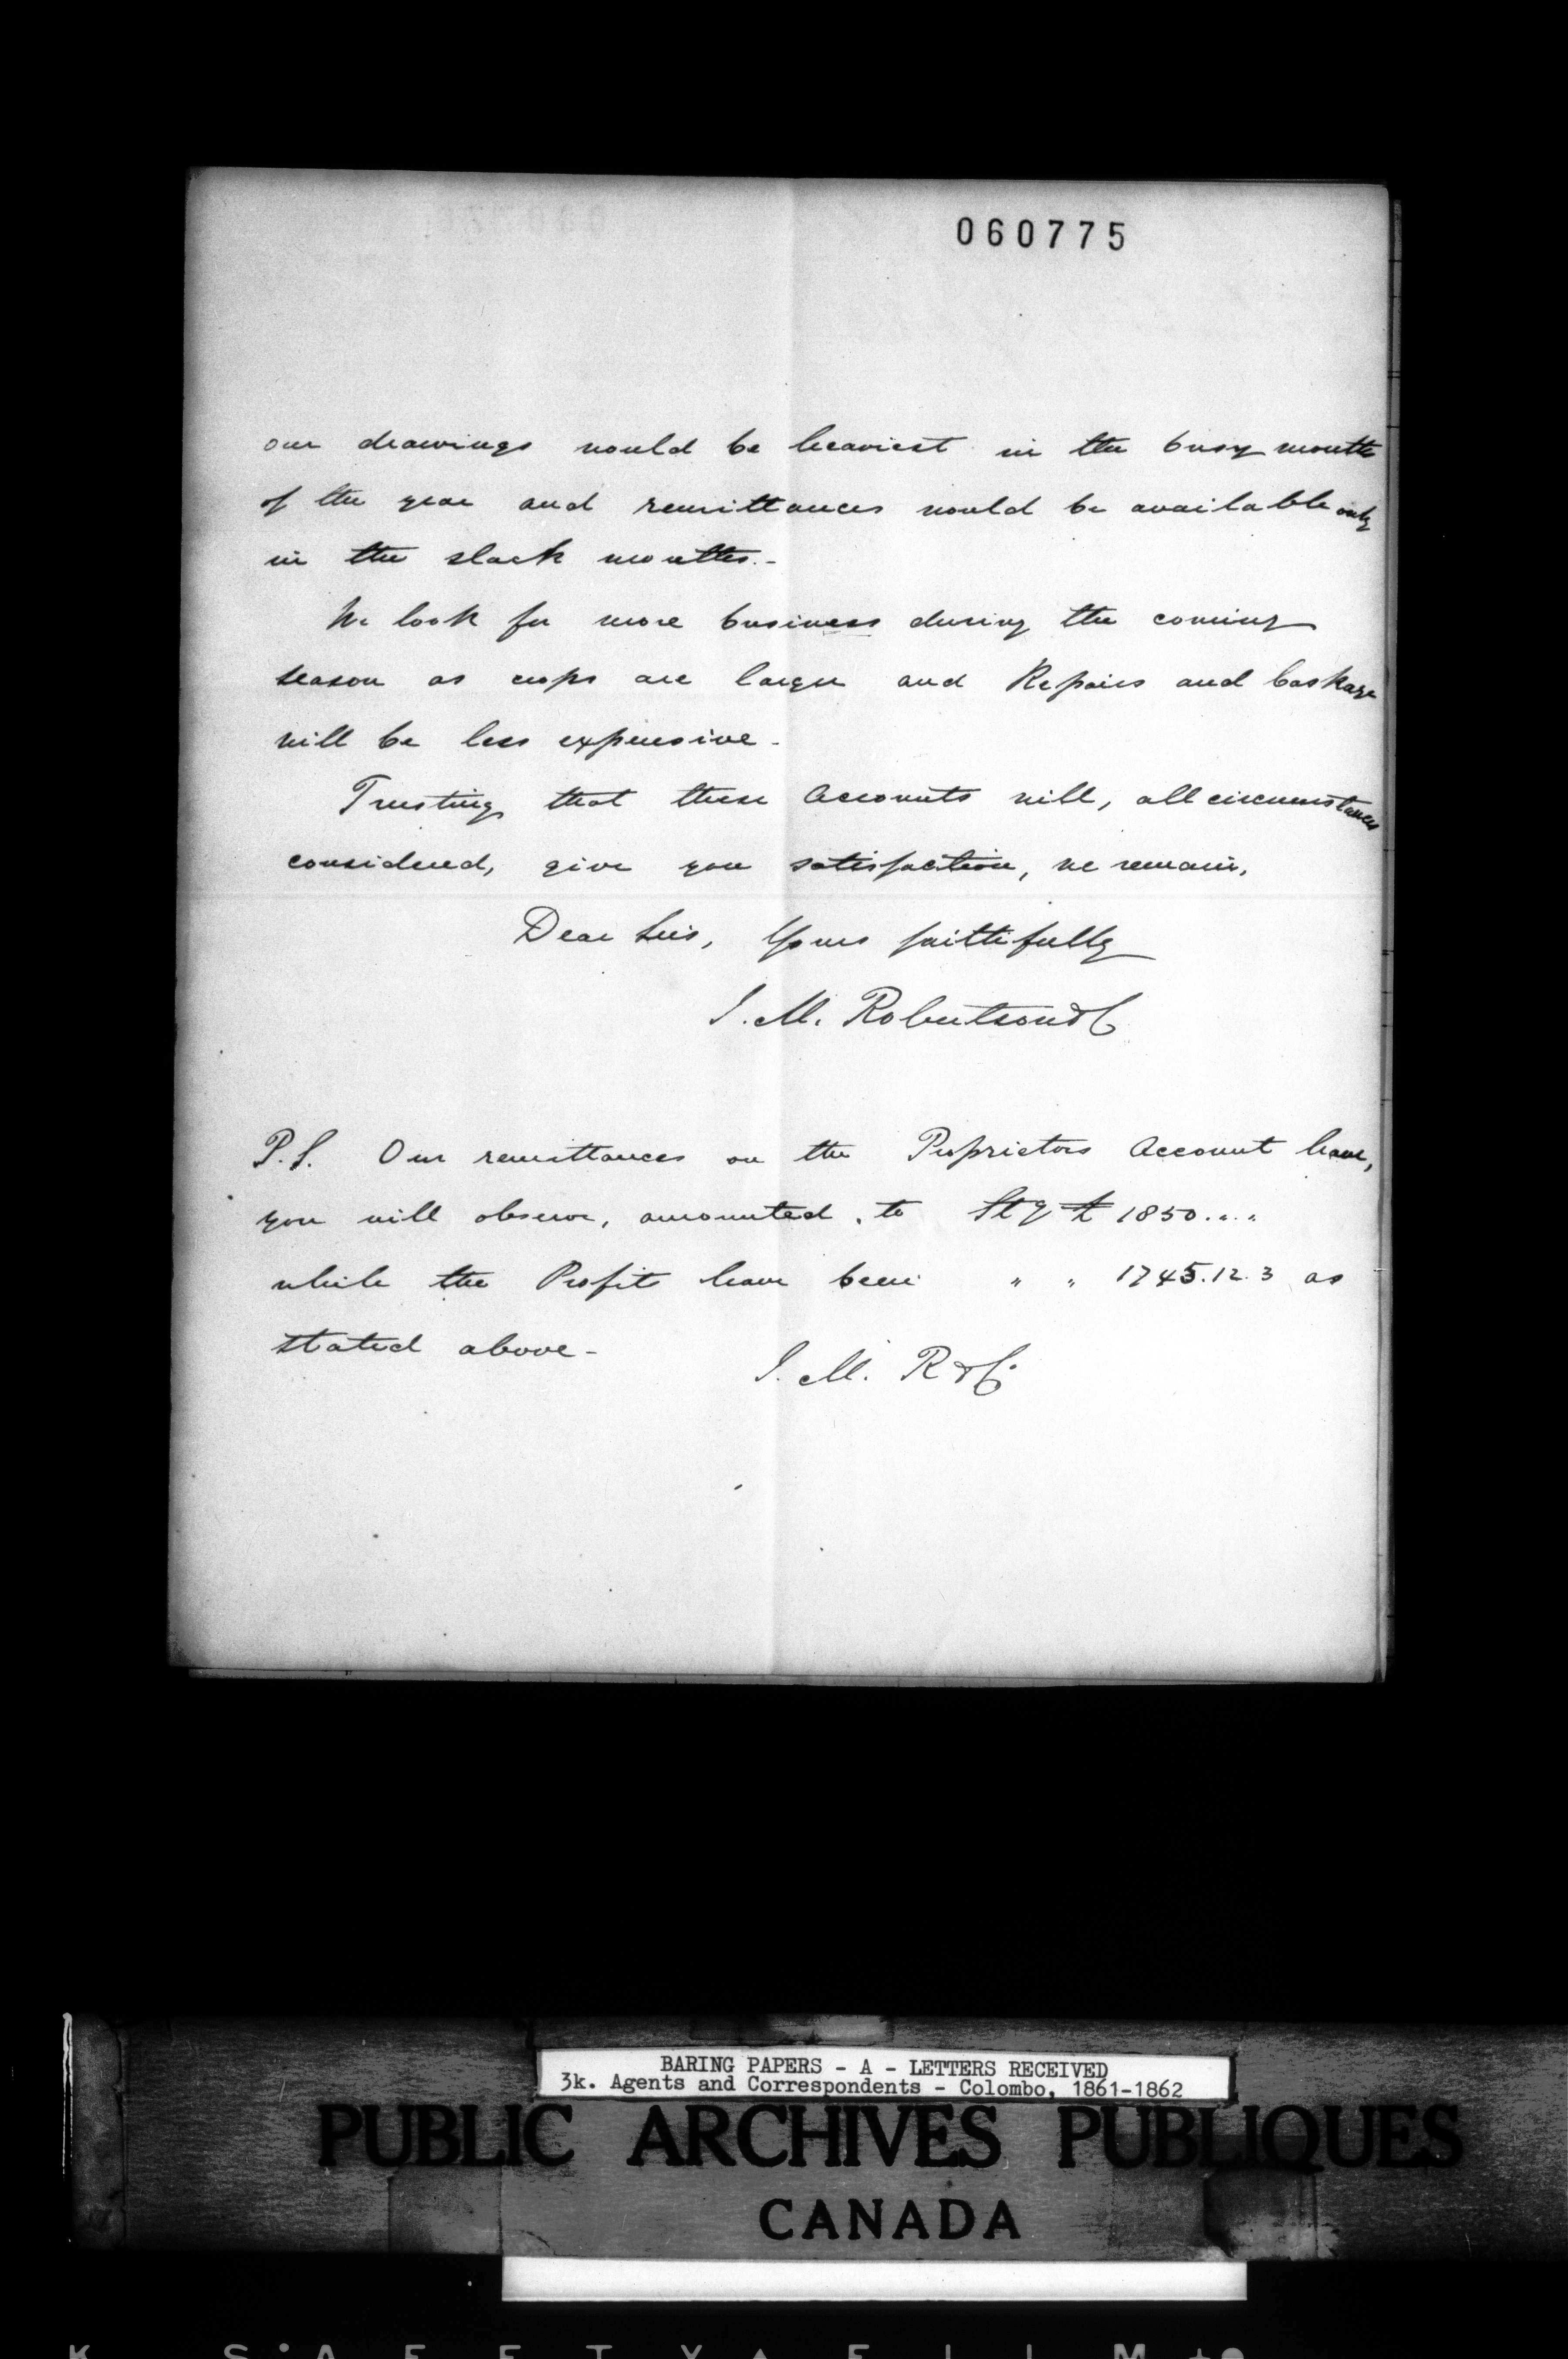 060775
our drawings would be heaviest in the busy months
of the year and remittances would be available only
in the slack months.-
We look for more business during the coming
season as crops are larger and Repairs and Coskage
will be less expensive -
Trusting that these Accounts will, all circumstances
considered, give you satisfaction, we remain,
Dear Sirs, Yours faithfully
J. M. Robertson & Co
P.S. Our remittances on the Proprietors Account have,
you will observe, amounted to Stg £ 1850.".."
while the Profits have been " " 1745.12.3 as
stated above -
J. M. R & Co
BARING PAPERS - A - LETTERS RECEIVED
3k. Agents and Correspondents - Colombo, 1861-1862
PUBLIC ARCHIVES PUBLIQUES
CANADA
K SAFETY FILM